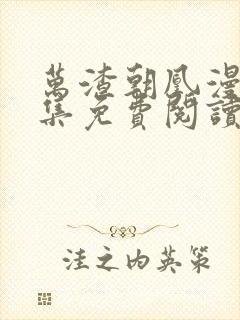 萬渣朝凰漫
集免費閱讀
洼之内英策